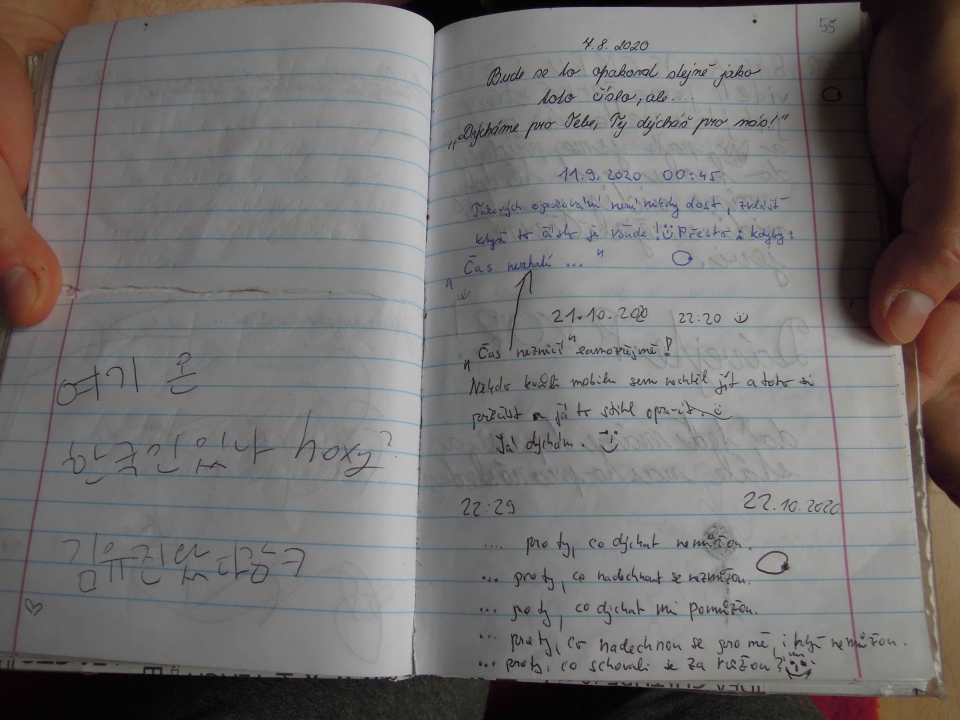 여기 온
한국인 있나요?
김유진 왔다감
♡
55
4.8.2020
Bude se to opakovat stejně jako
toto číslo, ale....
„Dýcháme pro Tebe, Ty dýcháš pro nás!"
11.9.2020 00:45
Takových opakování není nikdy dost, zvlášť
když to číslo je všude! Přesto i kdyby:
„Čas nezhalí ..."
21.10.2020 22:20
„Čas nezničí" samozřejmě!
Někdo kvůli mobilu sem nechtěl jít a toto si
přečíst a já to stihl opravit.
Já dýchám.
22:29 22.10.2020
.... pro ty, co dýchat nemůžou.
... pro ty, co nadechnout se nezmůžou.
... pro ty, co dýchat mi pomůžou.
... pro ty, co nadechnou se pro mě, i když nemůžou.
... pro ty, co schovali se za růžou?